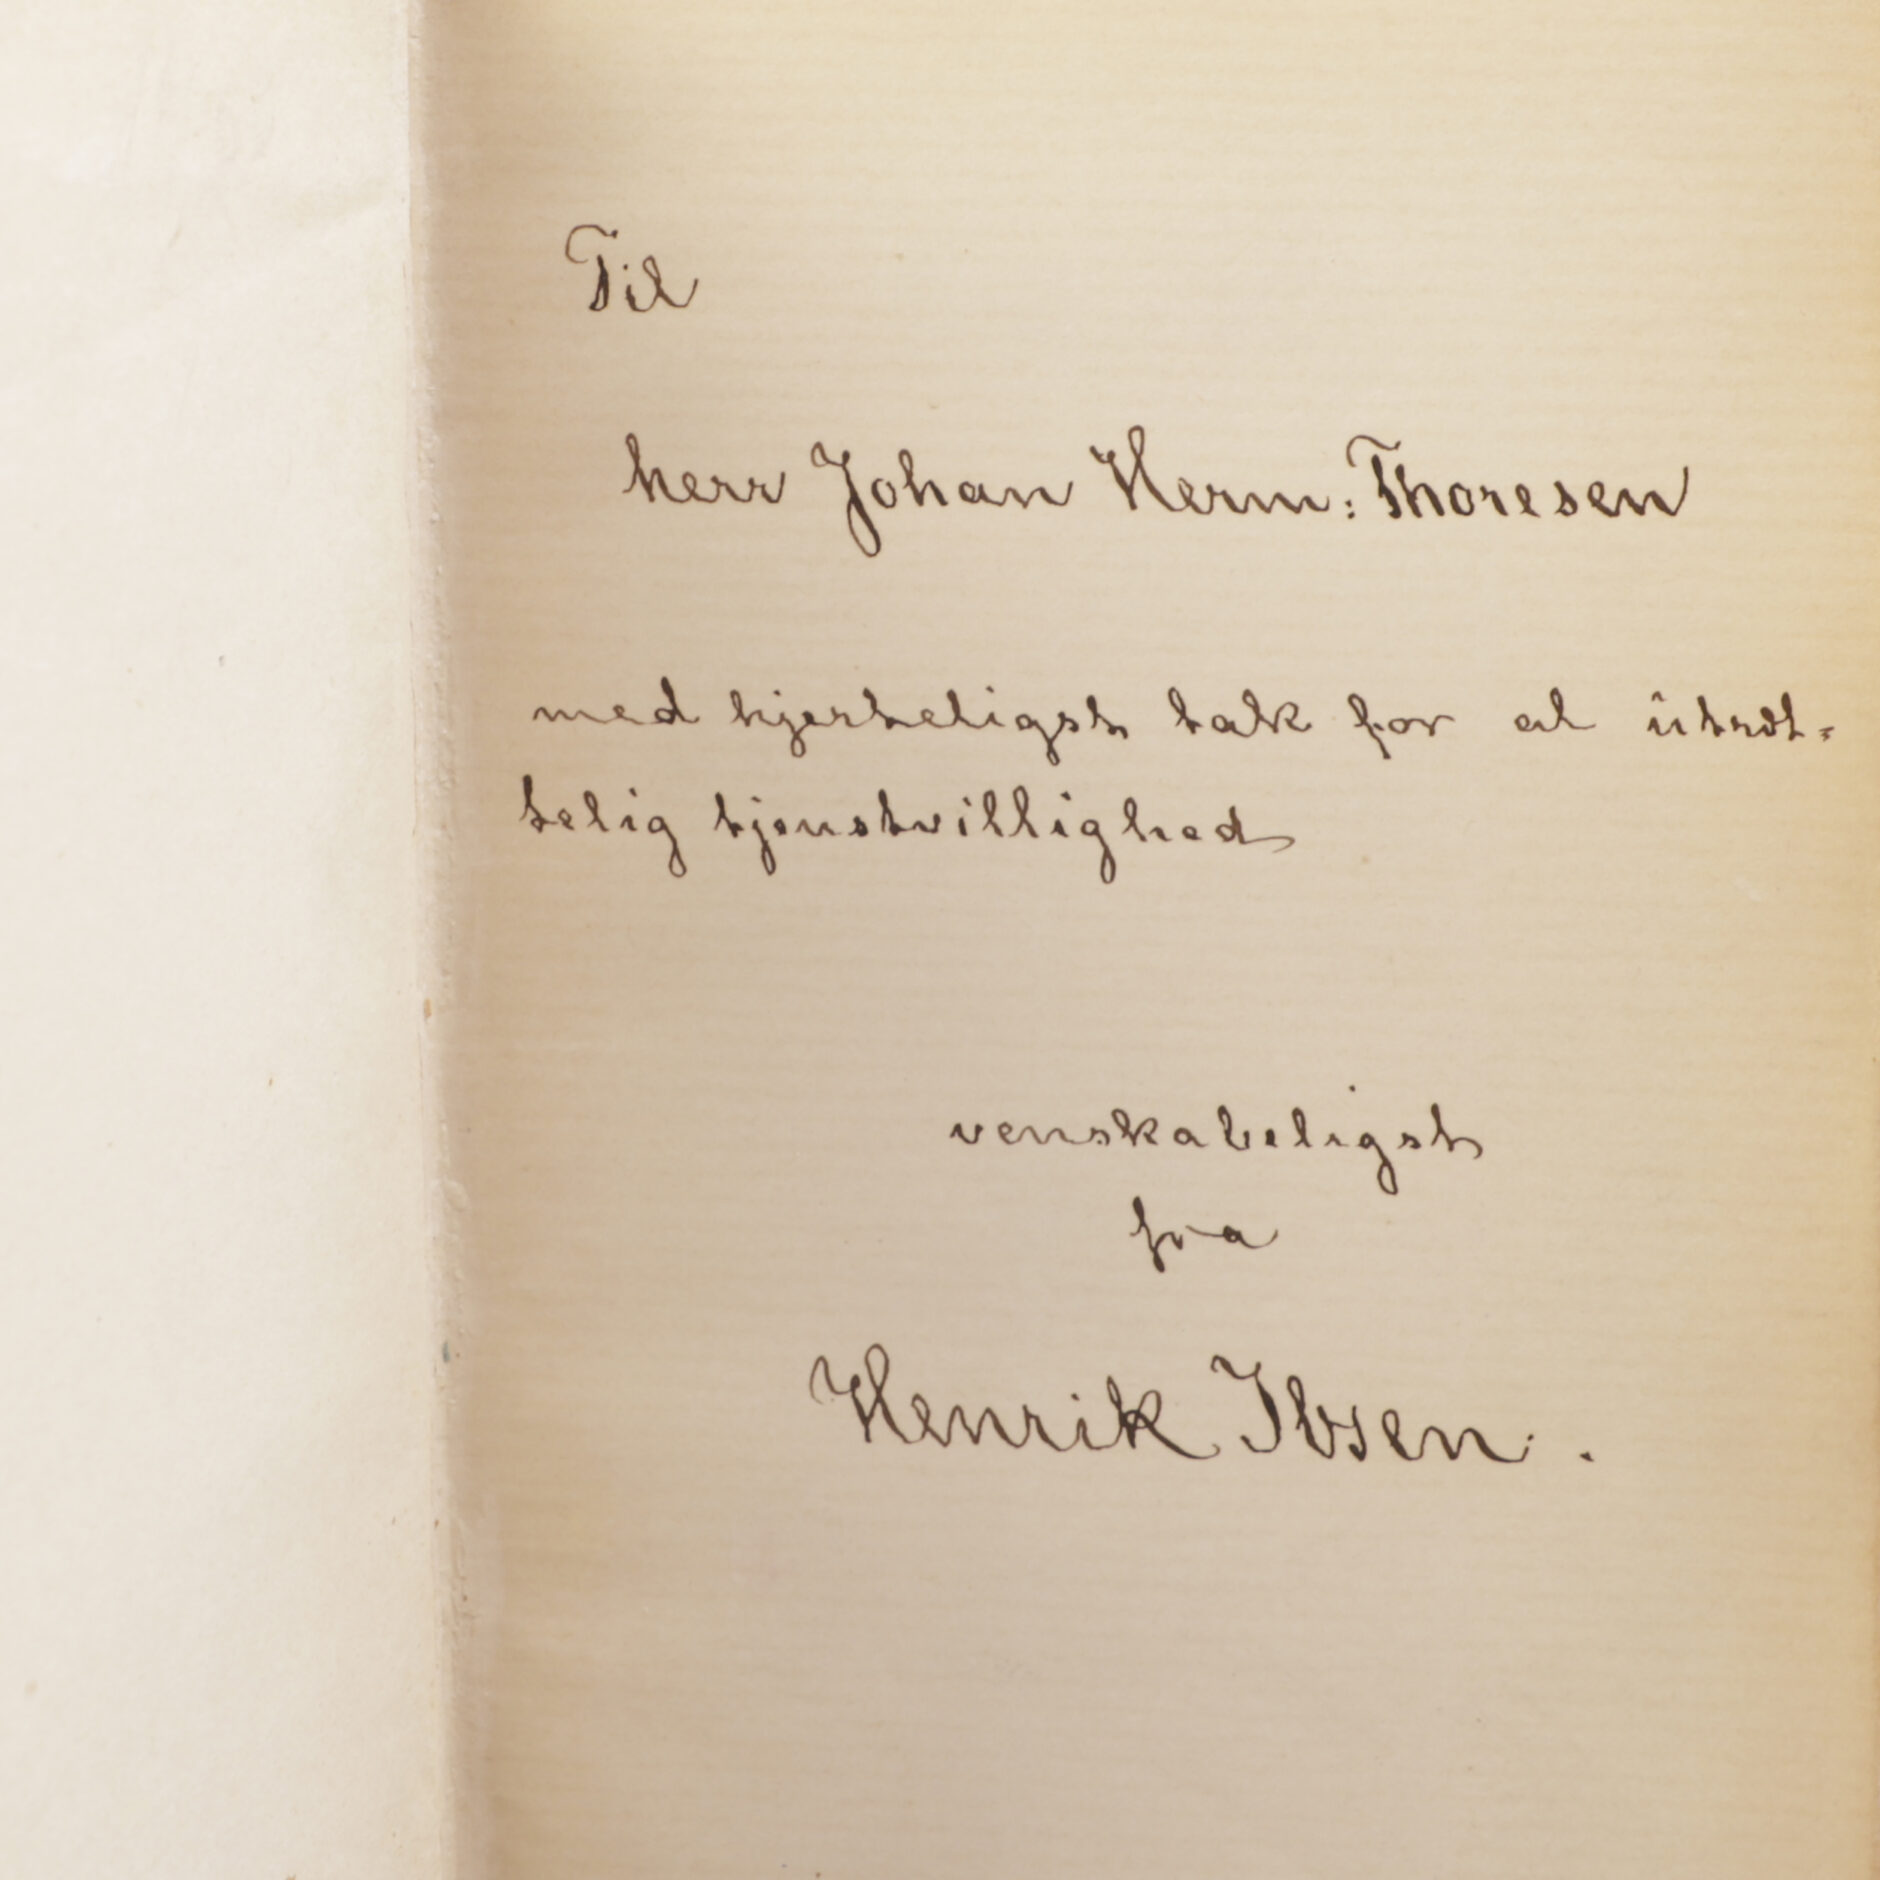 Til
herr Johan Herm: Thoresen
med hjerteligst tak for al utræt=
telig tjenstvillighed
venskabeligst
fra
Henrik Ibsen.